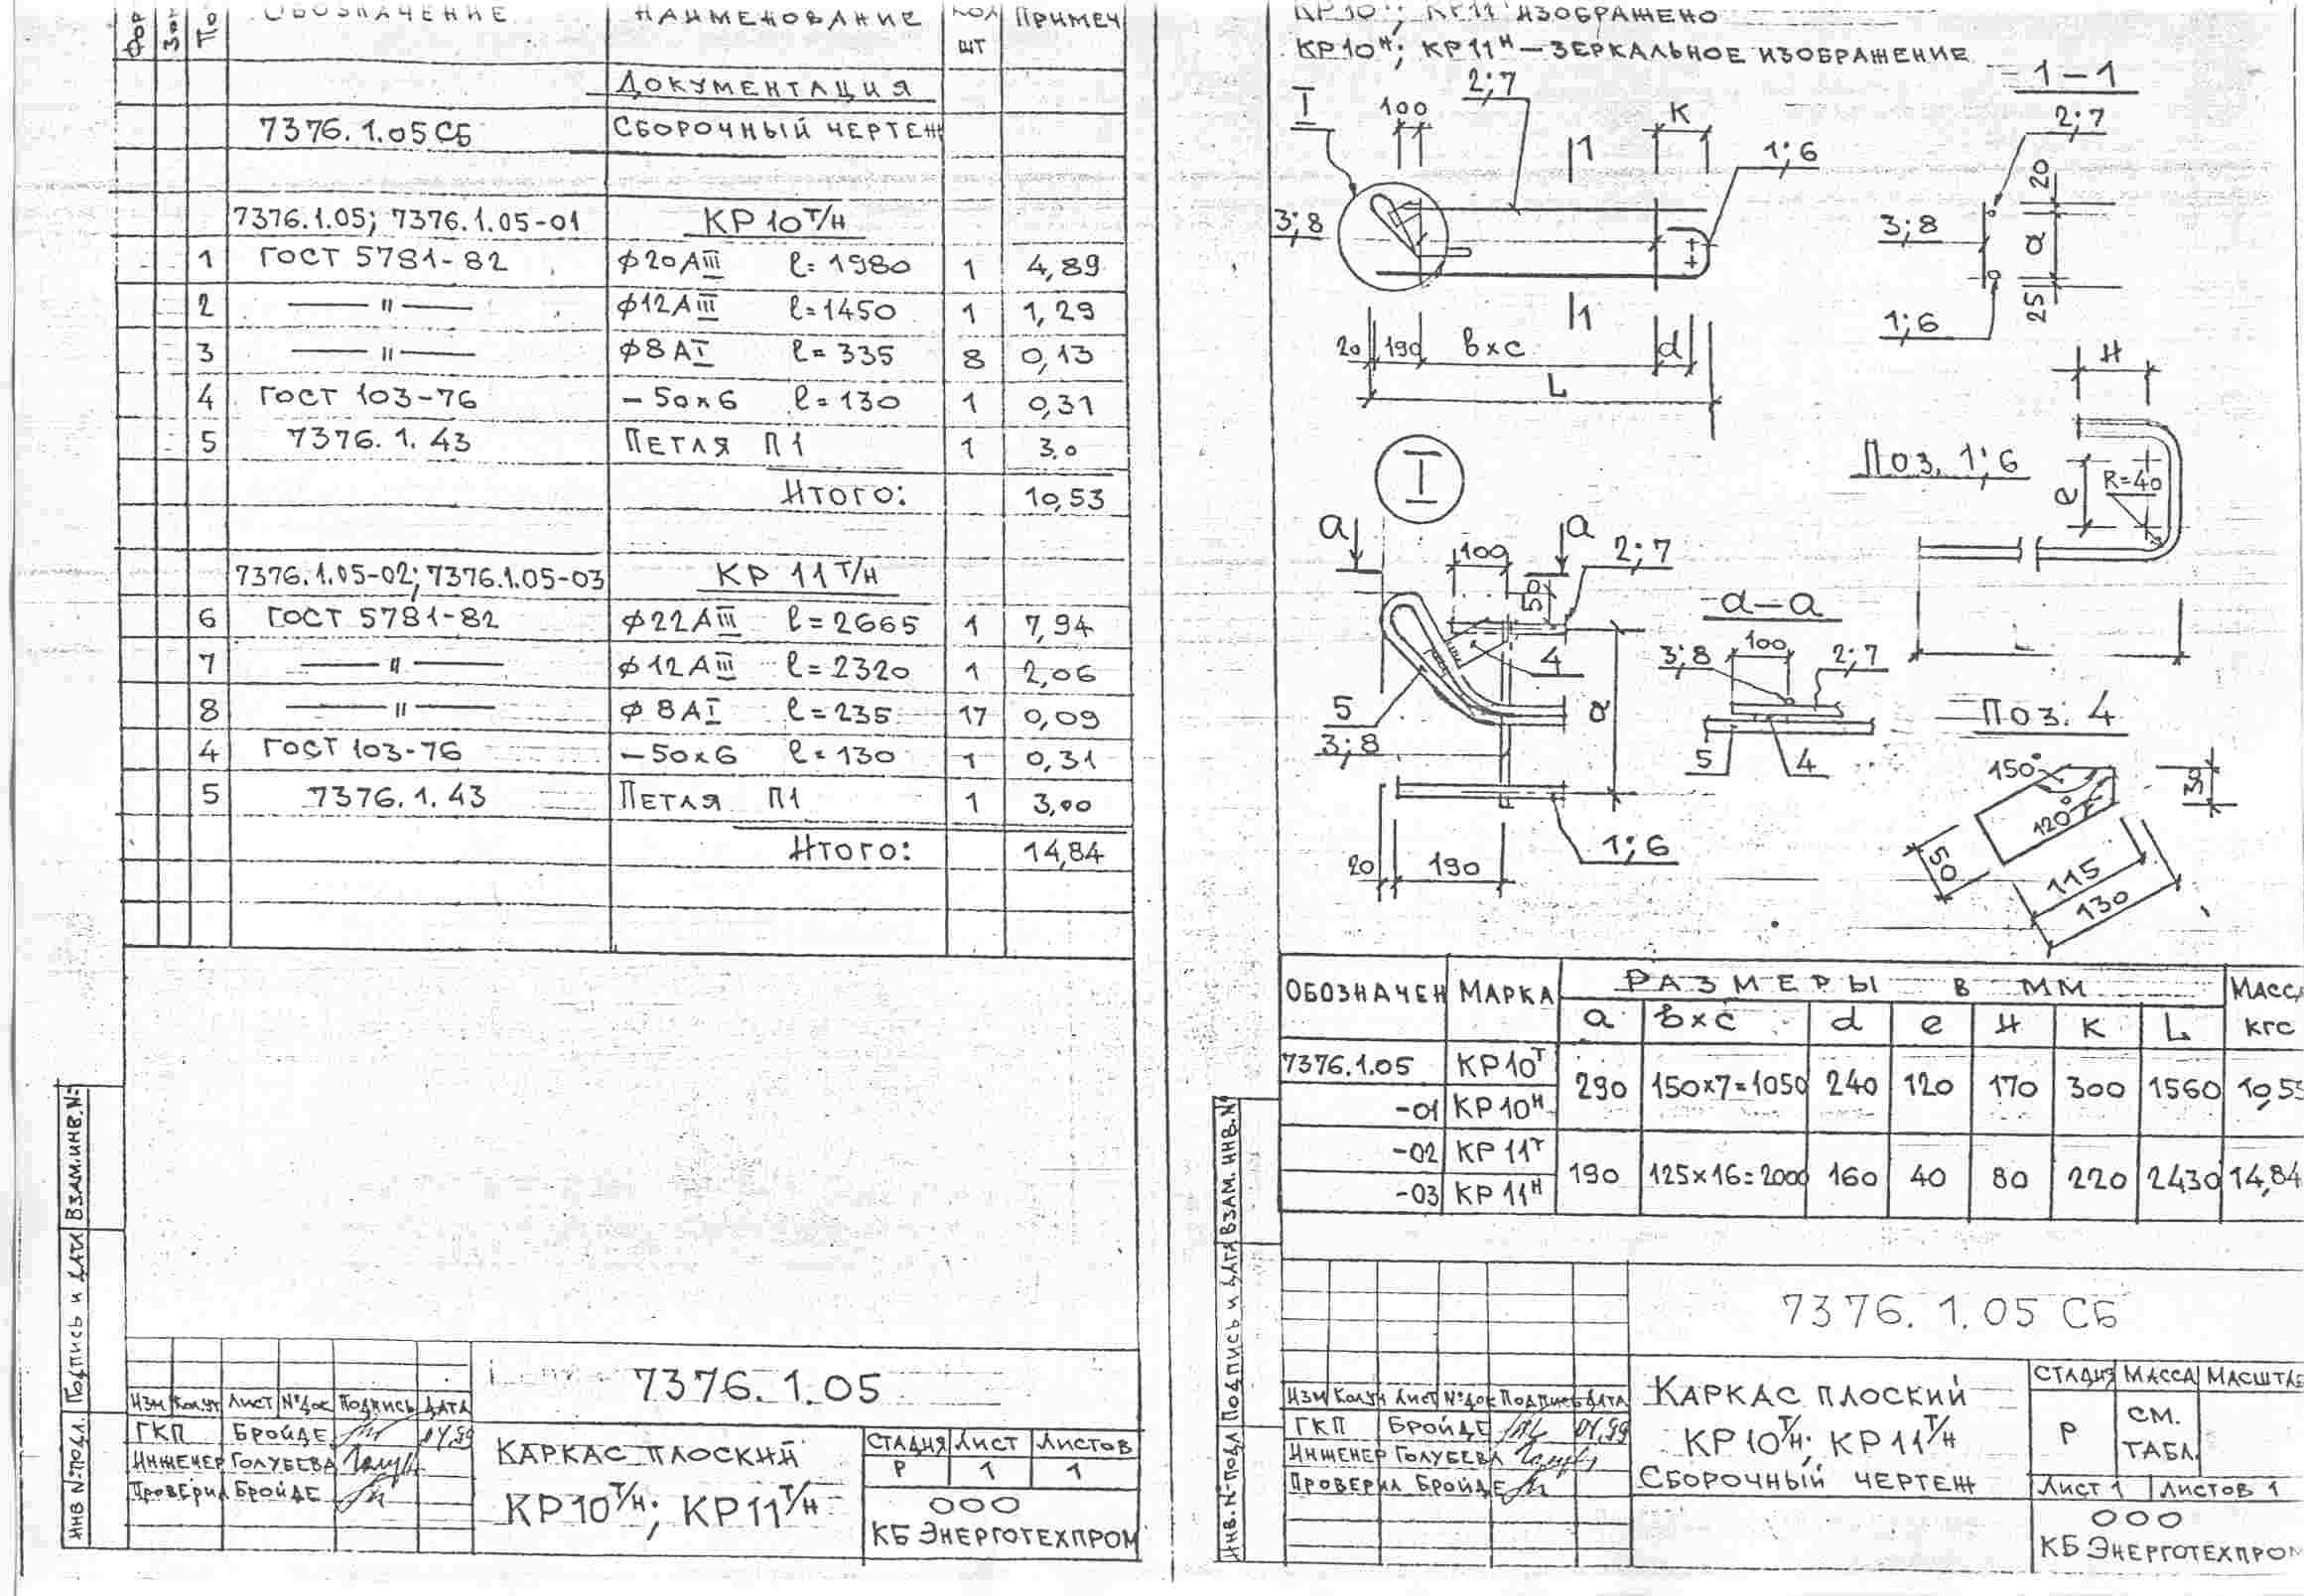 ОБОЗНАЧЕНИЕ НАИМЕНОВАНИЕ КОЛ ШТ ПРИМЕЧ
ДОКУМЕНТАЦИЯ
7376.1.05 СБ СБОРОЧНЫЙ ЧЕРТЕЖ
7376.1.05; 7376.1.05-01 КР 10 Т/Н
1 ГОСТ 5781-82 ϕ20АIII ℓ=1980 1 4,89
2 —— " —— ϕ12АIII ℓ=1450 1 1,29
3 —— " —— ϕ8АI ℓ=335 8 0,13
4 ГОСТ 103-76 -50×6 ℓ=130 1 0,31
5 7376.1.43 ПЕТЛЯ П1 1 3.0
ИТОГО: 10,53
7376.1.05-02; 7376.1.05-03 КР 11 Т/Н
6 ГОСТ 5781-82 ϕ22АIII ℓ=2665 1 7,94
7 —— " —— ϕ12АIII ℓ=2320 1 2,06
8 —— " —— ϕ8АI ℓ=235 17 0,09
4 ГОСТ 103-76 -50×6 ℓ=130 1 0,31
5 7376.1.43 ПЕТЛЯ П1 1 3,00
ИТОГО: 14,84
ВЗАМ.ИНВ.№
ПОДПИСЬ И ДАТА
ИНВ №ПОДЛ.
7376.1.05
ИЗМ КОЛ.УЧ ЛИСТ №ДОК ПОДПИСЬ ДАТА
ГКП БРОЙДЕ 04.99
ИНЖЕНЕР ГОЛУБЕВА
ПРОВЕРИЛ БРОЙДЕ
КАРКАС ПЛОСКИЙ
КР10Т/Н; КР11Т/Н
СТАДИЯ ЛИСТ ЛИСТОВ
Р 1 1
ООО
КБ ЭНЕРГОТЕХПРОМ
КР10Т; КР11Т ИЗОБРАЖЕНО
КР10Н; КР11Н — ЗЕРКАЛЬНОЕ ИЗОБРАЖЕНИЕ
I 100 2;7 1 К 1;6
3;8
1
20 190 в×с d
L
1-1
2;7
20
3;8 а
25
1;6
ПОЗ. 1;6
Н
е R=40
I
а а
100 50 2;7
4
5
3;8
а
20 190 1;6
а-а
3;8 100 2;7
5 4
ПОЗ. 4
150° 120°
50 115 130
ОБОЗНАЧЕН МАРКА РАЗМЕРЫ В ММ МАССА КГС
а в×с d е Н К L
7376.1.05 КР10Т 290 150×7=1050 240 120 170 300 1560 10,53
-01 КР10Н
-02 КР11Т 190 125×16=2000 160 40 80 220 2430 14,84
-03 КР11Н
ВЗАМ.ИНВ.№
ПОДПИСЬ И ДАТА
ИНВ.№ ПОДЛ
7376.1.05 СБ
ИЗМ КОЛ.УЧ ЛИСТ №ДОК ПОДПИСЬ ДАТА
ГКП БРОЙДЕ 04.99
ИНЖЕНЕР ГОЛУБЕВА
ПРОВЕРИЛ БРОЙДЕ
КАРКАС ПЛОСКИЙ
КР10Т/Н; КР11Т/Н
СБОРОЧНЫЙ ЧЕРТЕЖ
СТАДИЯ МАССА МАСШТАБ
Р СМ. ТАБЛ.
ЛИСТ 1 ЛИСТОВ 1
ООО
КБ ЭНЕРГОТЕХПРОМ